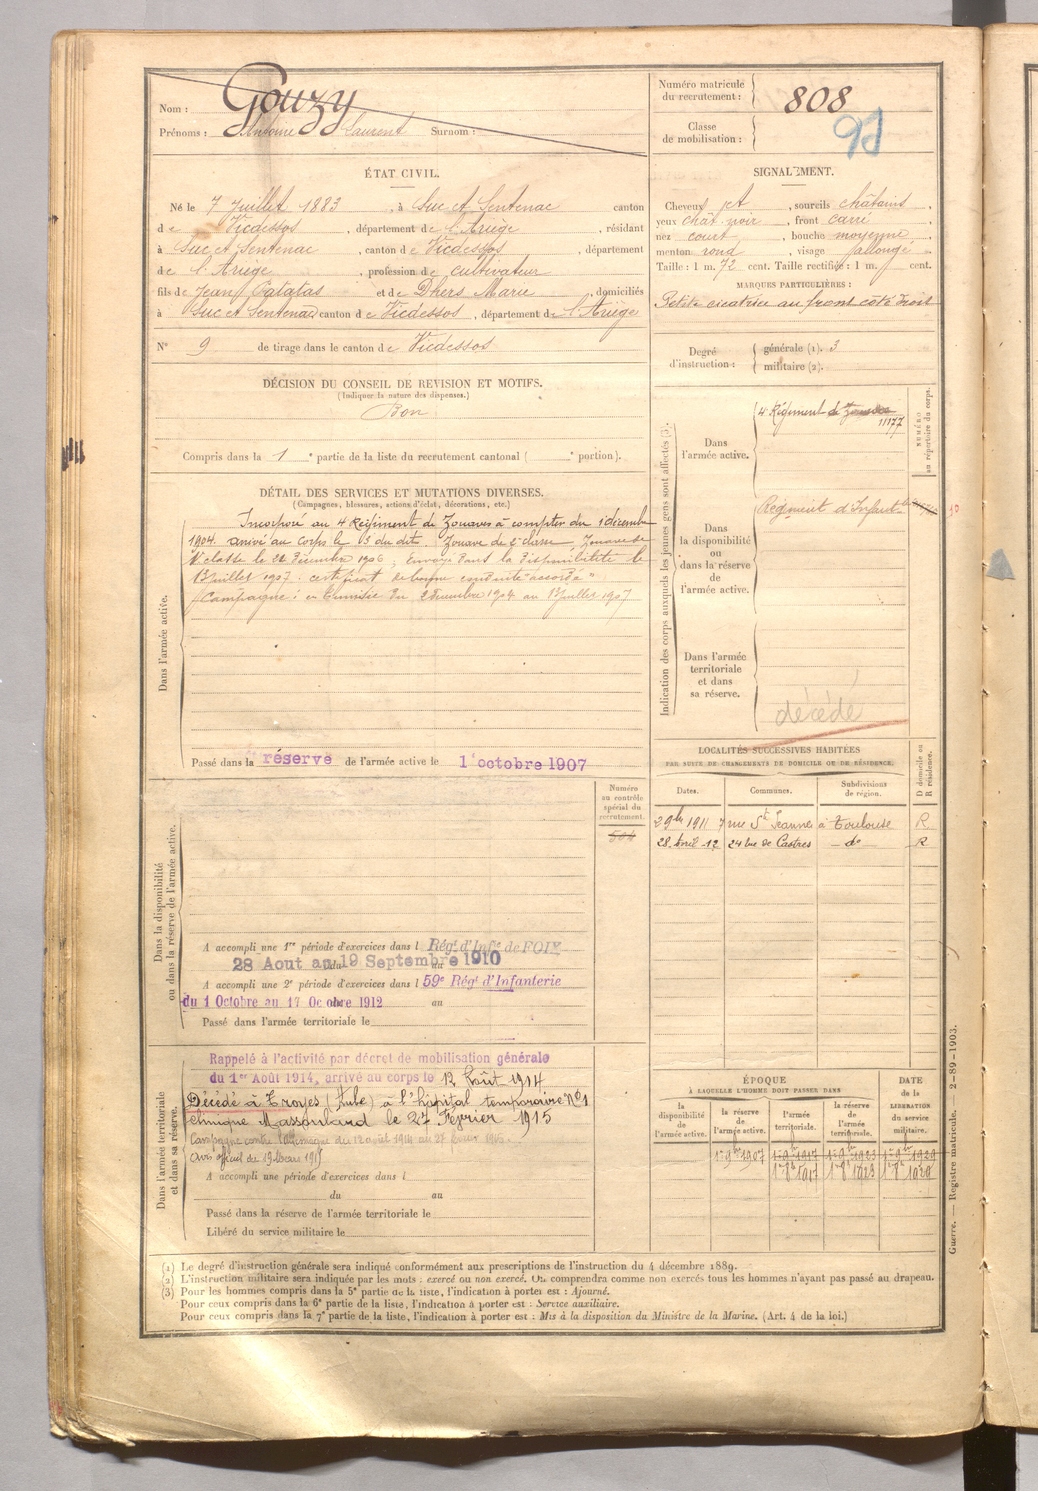 Nom : Gouzy
Prénoms : Antoine Laurent Surnom :
Numéro matricule du recrutement : 808
Classe de mobilisation :
ÉTAT CIVIL.
Né le 7 Juillet 1883, à Suc et Sentenac canton
de Vicdessos, département de l'Ariège, résidant
à Suc et Sentenac, canton de Vicdessos, département
de l'Ariège, profession de cultivateur
fils de Jean Patatas et de Dhers Marie, domiciliés
à Suc et Sentenac canton de Vicdessos, département de l'Ariège
N° 9 de tirage dans le canton de Vicdessos
SIGNALEMENT.
Cheveux jet, sourcils châtains,
yeux chât. noir, front carré
nez court, bouche moyenne,
menton rond, visage allongé
Taille : 1 m. 72 cent. Taille rectifiée : 1 m. cent.
MARQUES PARTICULIÈRES :
Petite cicatrice au front côté droit
Degré d'instruction : générale (1). 3
militaire (2).
DÉCISION DU CONSEIL DE REVISION ET MOTIFS.
(Indiquer la nature des dispenses.)
Bon
Compris dans la 1 e partie de la liste du recrutement cantonal ( e portion).
DÉTAIL DES SERVICES ET MUTATIONS DIVERSES.
(Campagnes, blessures, actions d'éclat, décorations, etc.)
Dans l'armée active.
Incorporé au 4 Régiment de Zouaves à compter du 1 décembre
1904. arrivé au corps le 3 du dit. Zouave de 2e classe, Zouave de
1e classe le 22 Décembre 1906, Envoyé dans la disponibilité le
13 juillet 1907. certificat de bonne conduite "accordé"
Campagne : en Tunisie du 2 décembre 1904 au 13 juillet 1907
Passé dans la réserve de l'armée active le 1 octobre 1907
Indication des corps auxquels les jeunes gens sont affectés (3).
NUMÉRO au répertoire du corps.
Dans l'armée active.
4e Régiment de Zouaves
11177
Dans la disponibilité ou dans la réserve de l'armée active.
Régiment d'Infant
Dans l'armée territoriale et dans sa réserve.
décédé
LOCALITÉS SUCCESSIVES HABITÉES
PAR SUITE DE CHANGEMENTS DE DOMICILE OU DE RÉSIDENCE.
D domicile ou R résidence.
Dates. Communes. Subdivisions de région.
29 bre 1911 7 rue Ste Jeanne à Toulouse R
28 Avril -12 24 rue de Castres -do- R
Dans la disponibilité ou dans la réserve de l'armée active.
Numéro au contrôle spécial du recrutement.
504
A accompli une 1re période d'exercices dans l Régt d'Infie de FOIX
28 Aout au 19 Septembre 1910
A accompli une 2e période d'exercices dans l 59e Régt d'Infanterie
du 1 Octobre au 17 Octobre 1912 au
Passé dans l'armée territoriale le
Dans l'armée territoriale et dans sa réserve.
Rappelé à l'activité par décret de mobilisation générale
du 1er Août 1914, arrivé au corps le 12 Août 1914
Décédé à Troyes (Aube) à l'hôpital temporaire N°1
clinique le 27 Fevrier 1915
Campagne contre l'Allemagne du 12 août 1914 au 27
Avis officiel du 19 Mars 1915
A accompli une période d'exercices dans l
du au
Passé dans la réserve de l'armée territoriale le
Libéré du service militaire le
ÉPOQUE
À LAQUELLE L'HOMME DOIT PASSER DANS
la disponibilité de l'armée active.
la réserve de l'armée active.
l'armée territoriale.
la réserve de l'armée territoriale.
DATE de la LIBÉRATION du service militaire.
1907 1917 1923 1929
1917 1923 1929
(1) Le degré d'instruction générale sera indiqué conformément aux prescriptions de l'instruction du 4 décembre 1889.
(2) L'instruction militaire sera indiquée par les mots : exercé ou non exercé. On comprendra comme non exercés tous les hommes n'ayant pas passé au drapeau.
(3) Pour les hommes compris dans la 5e partie de la liste, l'indication à porter est : Ajourné.
Pour ceux compris dans la 6e partie de la liste, l'indication à porter est : Service auxiliaire.
Pour ceux compris dans la 7e partie de la liste, l'indication à porter est : Mis à la disposition du Ministre de la Marine. (Art. 4 de la loi.)
Guerre. — Registre matricule. — 2-89-1903.